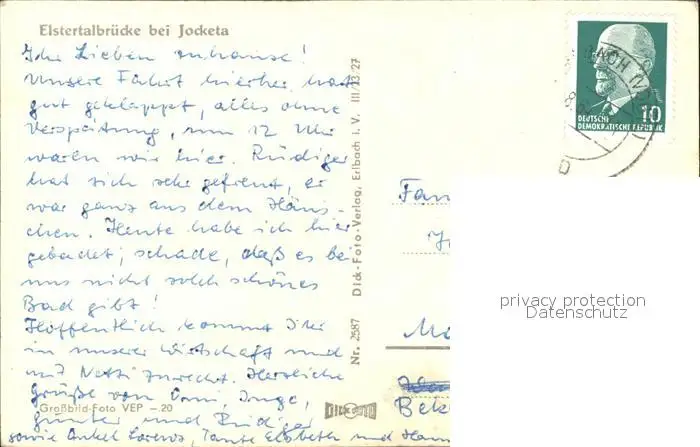 Elstertalbrücke bei Jocketa
Ihr Lieben zuhause!
Unsere Fahrt hierher hat
gut geklappt, alles ohne
Verspätung, um 12 Uhr
waren wir hier. Rüdiger
hat sich sehr gefreut, er
war ganz aus dem Häus-
chen. Heute habe ich hier
gebadet; schade, daß es bei
uns nicht solch schönes
Bad gibt!
Hoffentlich kommt Ihr
in unserer Wirtschaft und
mit Netti zurecht. Herzliche
Grüße von Omi, Inge,
Großbild-Foto VEP –.20
Günter und Rüdiger
sowie Onkel Lorenz, Tante Elsbeth und
Nr. 2587 Dick-Foto-Verlag, Erlbach i. V. III/23/27
DICK FOTO
10
DEUTSCHE
DEMOKRATISCHE REPUBLIK
Fam
Bek
privacy protection
Datenschutz